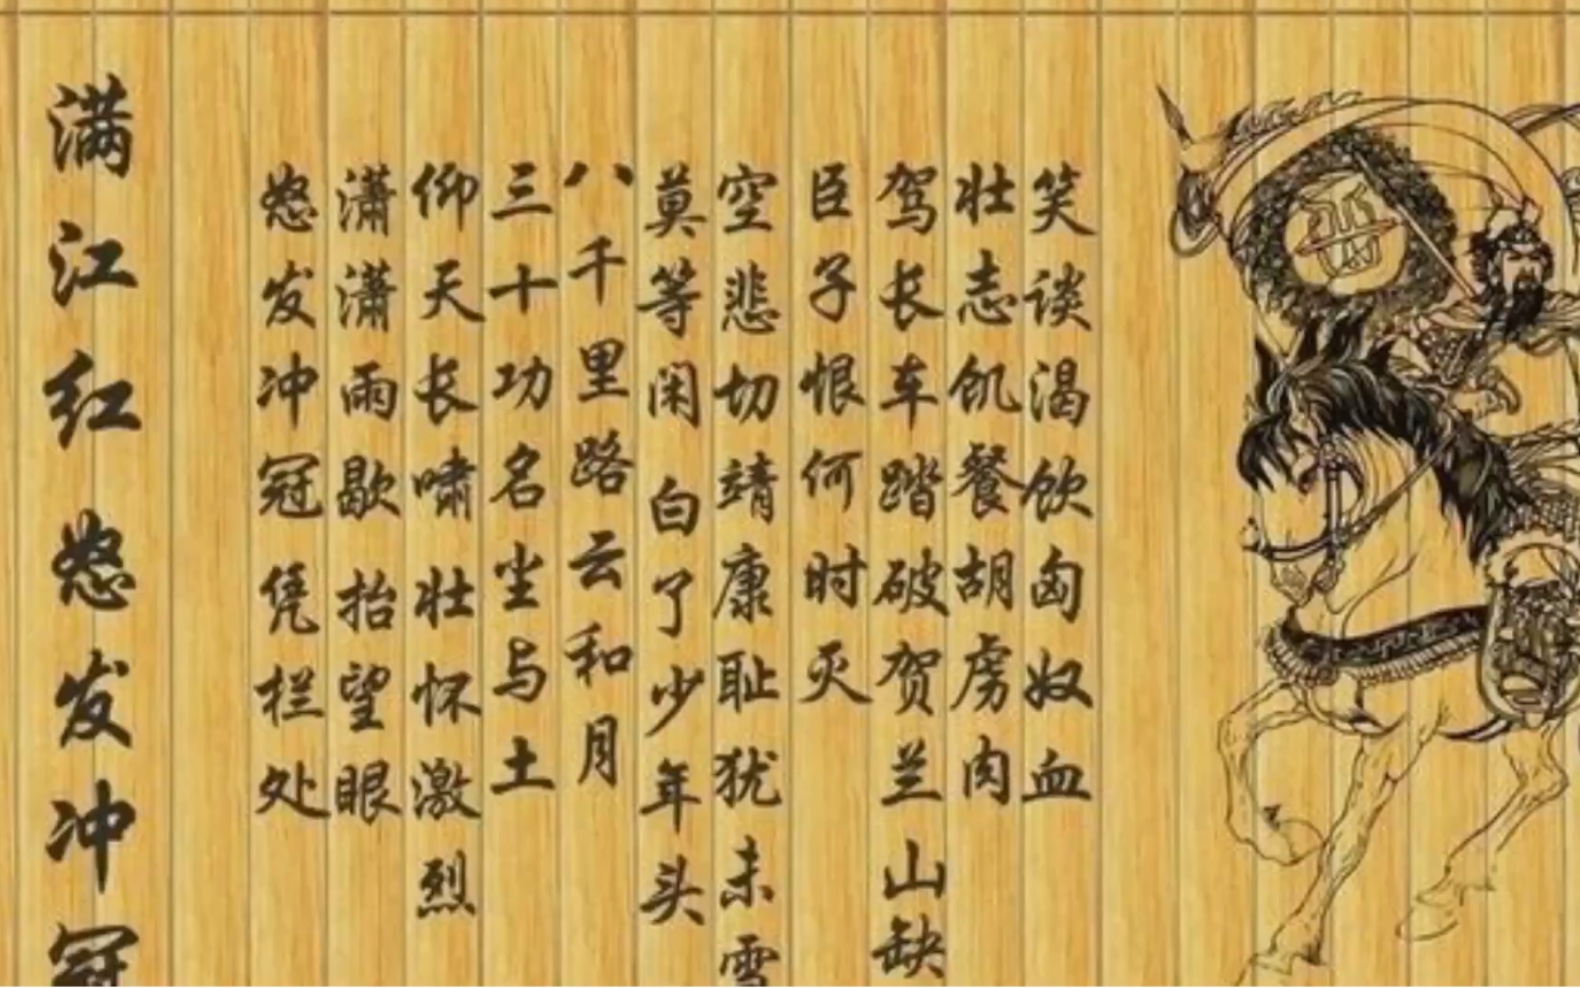 满江红 怒发冲冠
怒发冲冠凭栏处
潇潇雨歇 抬望眼
仰天长啸壮怀激烈
三十功名尘与土
八千里路云和月
莫等闲 白了少年头
空悲切靖康耻犹未雪
臣子恨何时灭
驾长车踏破贺兰山缺
壮志饥餐胡虏肉
笑谈渴饮匈奴血